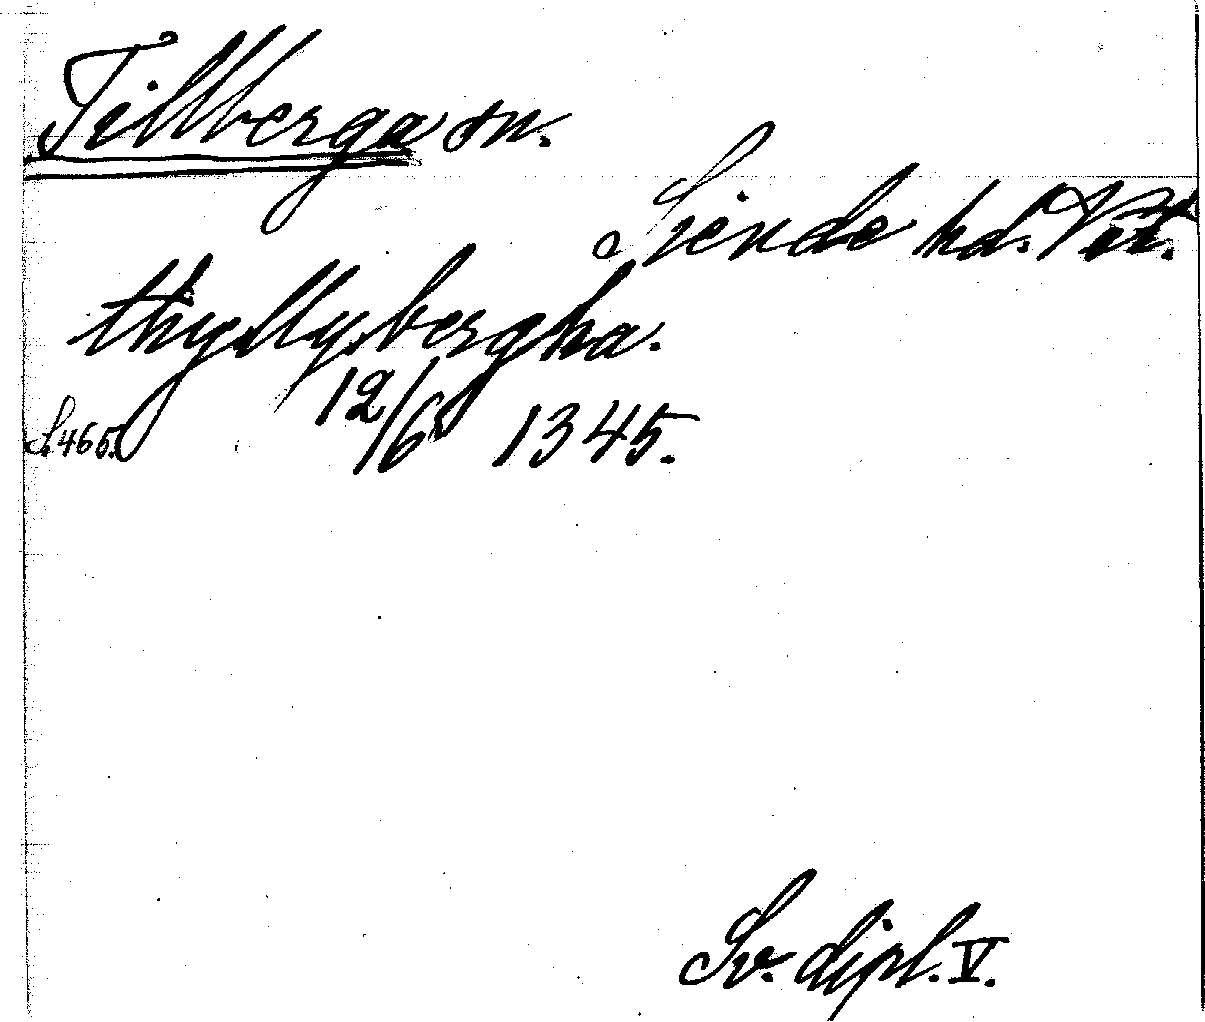 Tillberga sn.
Siende hd. Vät.
thyllybergha.
12/6 1345.
S. 465.
Sv. dipl. V.